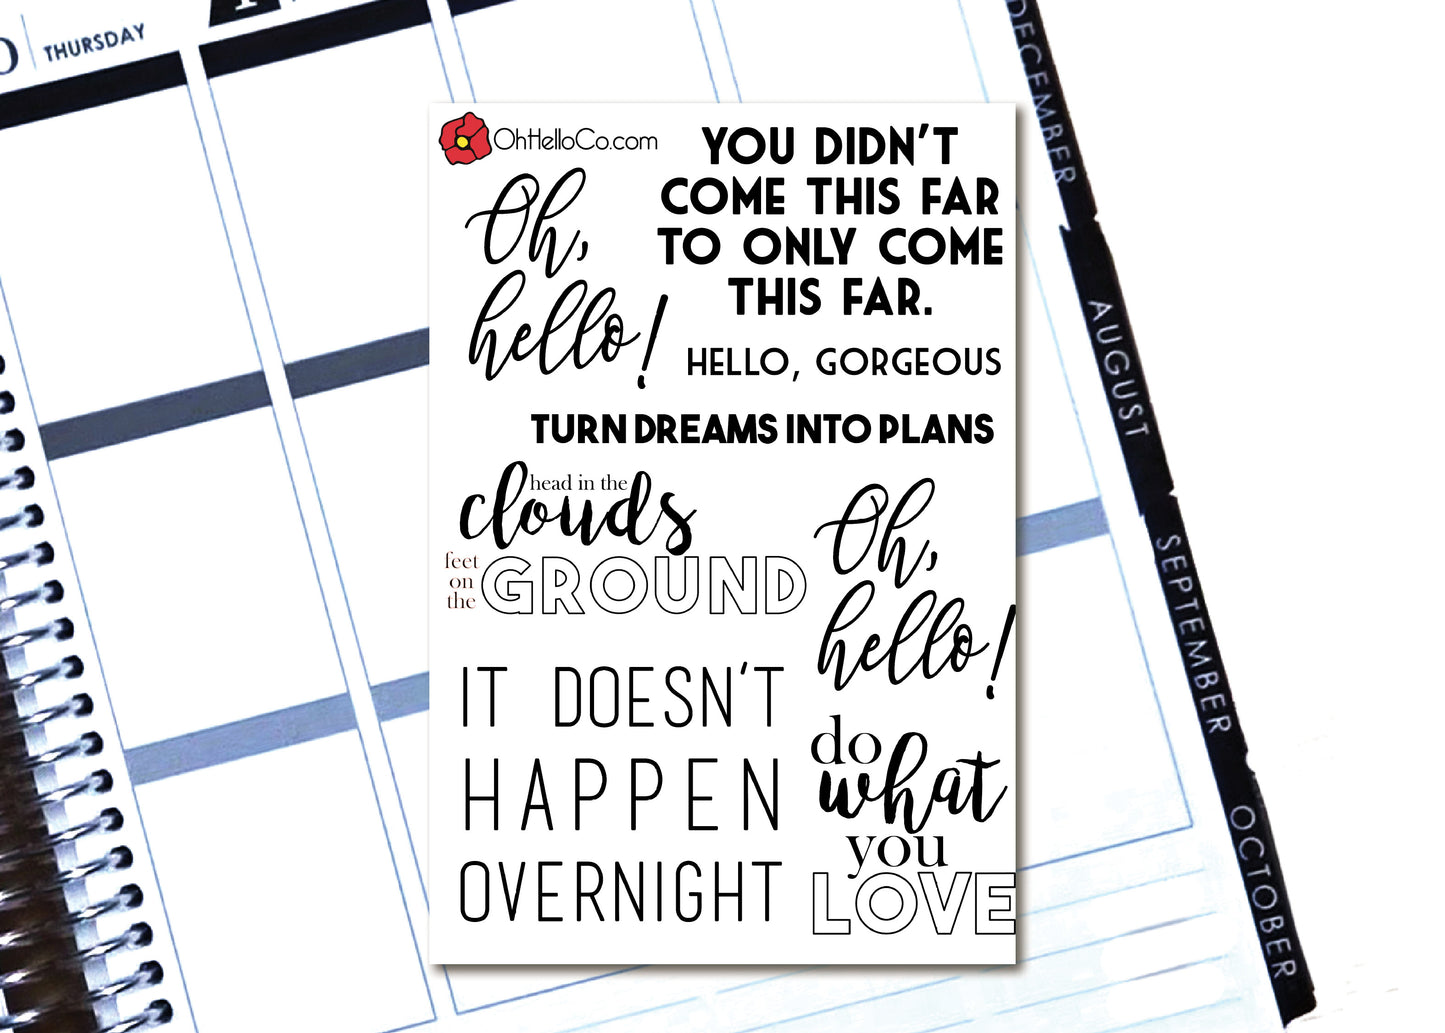 THURSDAY
OhHelloCo.com
Oh,
hello!
YOU DIDN'T
COME THIS FAR
TO ONLY COME
THIS FAR.
HELLO, GORGEOUS
TURN DREAMS INTO PLANS
head in the
clouds
feet
on
the
GROUND
Oh,
hello!
IT DOESN'T
HAPPEN
OVERNIGHT
do
what
you
LOVE
DECEMBER
AUGUST
SEPTEMBER
OCTOBER